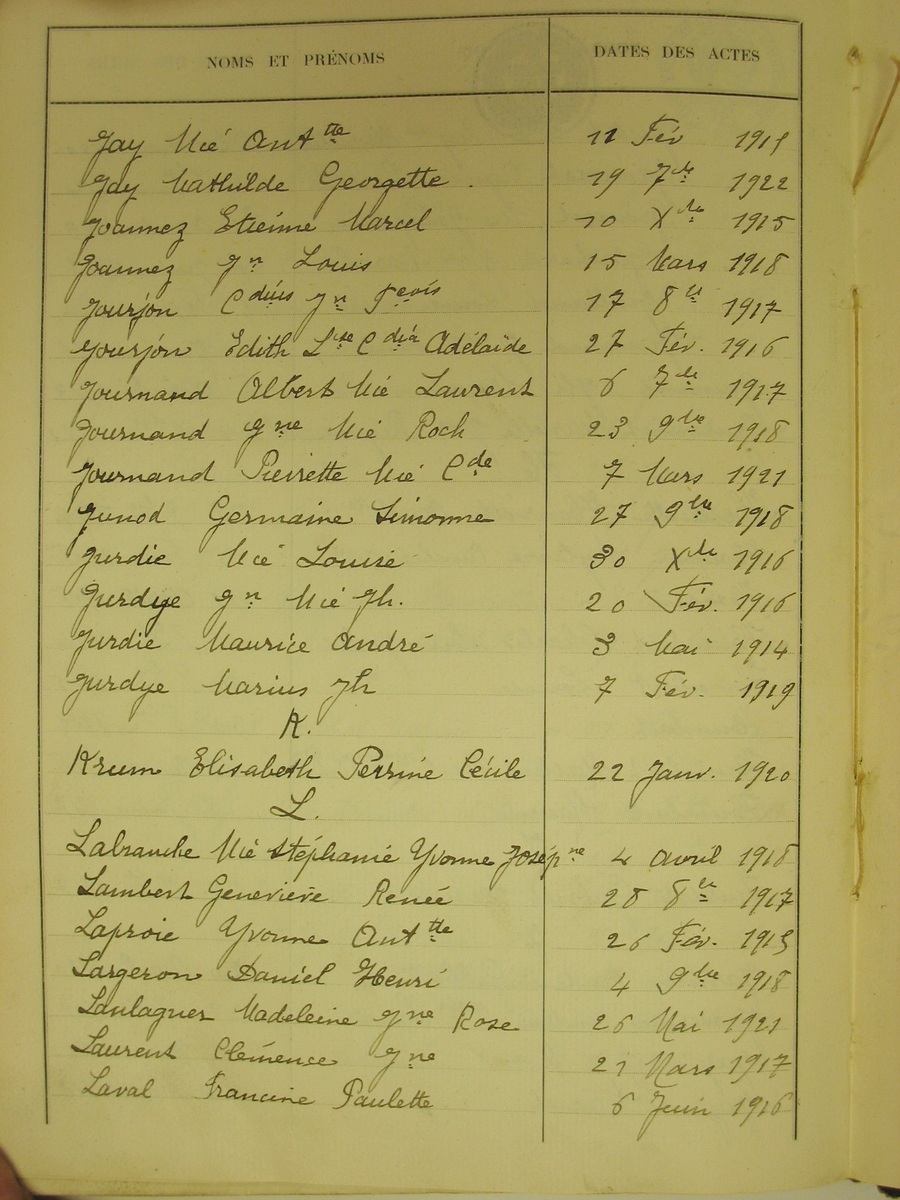 NOMS ET PRÉNOMS DATES DES ACTES
Jay Mié Anttte 11 Fév 1915
Jay Mathilde Georgette. 19 7bre 1922
Joannez Etienne Marcel 10 Xbre 1915
Joannez Jn Louis 15 Mars 1918
Jourjon Cdius Jn Fcois 17 8bre 1917
Jourjon Edith Lise Cdia Adélaïde 27 Fév. 1916
Journand Albert Mié Laurent 6 7bre 1917
Journand Jne Mié Roch 23 9bre 1918
Journand Pierrette Mié Cde 7 Mars 1921
Junod Germaine Simonne 27 9bre 1918
Jurdie Mié Louise 30 Xbre 1916
Jurdye Jn Mié Jh. 20 Fév. 1916
Jurdie Maurice André 3 Mai 1914
Jurdye Marius Jh 7 Fév. 1919
K.
Krum Elisabeth Perrine Cécile 22 Janv. 1920
L.
Labranche Mié Stéphanie Yvonne Joséphne 4 Avril 1918
Lambert Geneviève Renée 28 8bre 1917
Laproie Yvonne Anttte 26 Fév. 1915
Largeron Daniel Henri 4 9bre 1918
Laulagner Madeleine Jne Rose 26 Mai 1921
Laurent Clémence Jne 21 Mars 1917
Laval Francine Paulette 6 Juin 1916